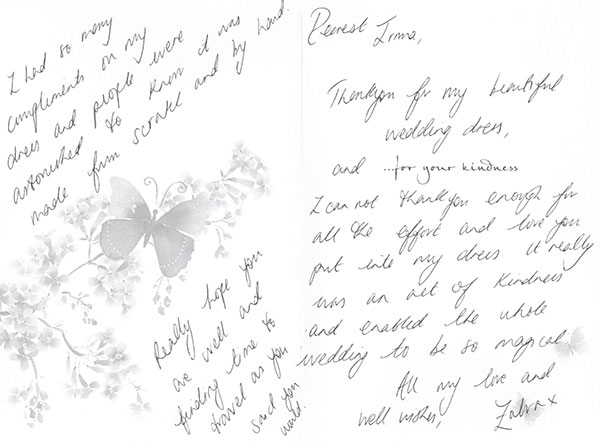 Dearest Irma,
Thankyou for my beautiful
wedding dress,
and ...for your kindness
I can not thankyou enough for
all the effort and love you
put into my dress. It really
was an act of kindness
and enabled the whole
wedding to be so magical
All my love and
well wishes,
x
I had so many
compliments on my
dress and people were
astonished to know it was
made from scratch and by hand.
Really hope you
are well and
finding time to
travel as you
said you
would.